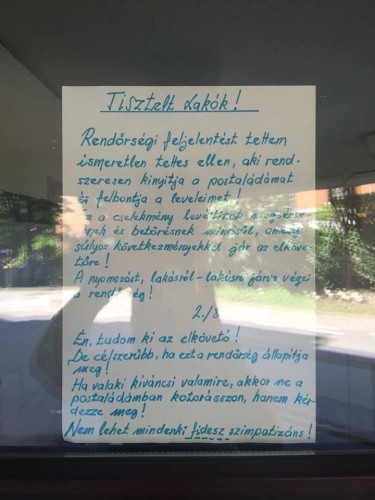 Tisztelt Lakók!
Rendőrségi feljelentést tettem
ismeretlen tettes ellen, aki rend-
szeresen kinyitja a postaládámat
és felbontja a leveleimet!
Ez a cselekmény levéltitok megsérté-
sének és betörésnek minősül, amely
súlyos következményekkel jár az elköve-
tőre!
A nyomozást, lakásról-lakásra járva végzi
a rendőrség!
2./8
Én, tudom ki az elkövető!
De célszerűbb, ha ezt a rendőrség állapítja
meg!
Ha valaki kíváncsi valamire, akkor ne a
postaládámban kotorásszon, hanem kér-
dezze meg!
Nem lehet mindenki fidesz szimpatizáns!